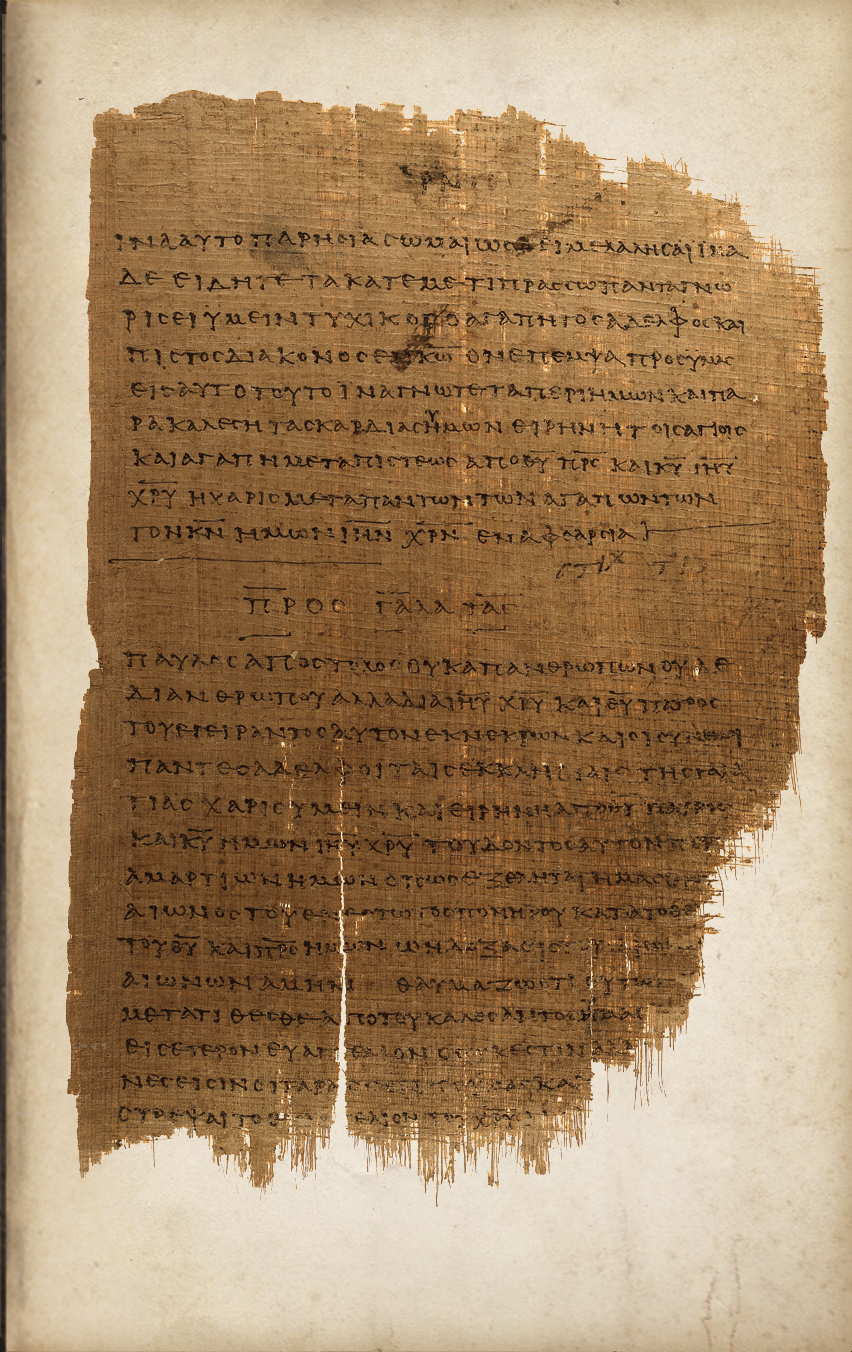 ΡΝ
ΙΝΑ ΑΥΤΟ ΠΑΡΗϹΙΑϹΩΜΑΙ ΩϹ ΔΕΙ ΜΕ ΛΑΛΗϹΑΙ ΙΝΑ
ΔΕ ΕΙΔΗΤΕ ΤΑ ΚΑΤ ΕΜΕ ΤΙ ΠΡΑϹϹΩ ΠΑΝΤΑ ΓΝΩ
ΡΙϹΕΙ ΥΜΕΙΝ ΤΥΧΙΚΟϹ Ο ΑΓΑΠΗΤΟϹ ΑΔΕΛΦΟϹ ΚΑΙ
ΠΙϹΤΟϹ ΔΙΑΚΟΝΟϹ ΕΝ Κ̅Ω̅ ΟΝ ΕΠΕΜΨΑ ΠΡΟϹ ΥΜΑϹ
ΕΙϹ ΑΥΤΟ ΤΟΥΤΟ ΙΝΑ ΓΝΩΤΕ ΤΑ ΠΕΡΙ ΗΜΩΝ ΚΑΙ ΠΑ
ΡΑΚΑΛΕϹΗ ΤΑϹ ΚΑΡΔΙΑϹ ΥΗΜΩΝ ΕΙΡΗΝΗ ΤΟΙϹ ΑΓΙΟΙϹ
ΚΑΙ ΑΓΑΠΗ ΜΕΤΑ ΠΙϹΤΕΩϹ ΑΠΟ Θ̅Υ̅ Π̅Ρ̅Ϲ̅ ΚΑΙ Κ̅Υ̅ Ι̅Η̅Υ̅
Χ̅Ρ̅Υ̅ Η ΧΑΡΙϹ ΜΕΤΑ ΠΑΝΤΩΝ ΤΩΝ ΑΓΑΠΩΝΤΩΝ
ΤΟΝ Κ̅Ν̅ ΗΜΩΝ Ι̅Η̅Ν̅ Χ̅Ρ̅Ν̅ ΕΝ ΑΦΘΑΡϹΙΑ
ϹΤΙΧ ΤΙϚ
ΠΡΟϹ ΓΑΛΑΤΑϹ
ΠΑΥΛΟϹ ΑΠΟϹΤΟΛΟϹ ΟΥΚ ΑΠ ΑΝΘΡΩΠΩΝ ΟΥΔΕ
ΔΙ ΑΝΘΡΩΠΟΥ ΑΛΛΑ ΔΙΑ Ι̅Η̅Υ̅ Χ̅Ρ̅Υ̅ ΚΑΙ Θ̅Υ̅ ΠΑΤΡΟϹ
ΤΟΥ ΕΓΕΙΡΑΝΤΟϹ ΑΥΤΟΝ ΕΚ ΝΕΚΡΩΝ ΚΑΙ ΟΙ ϹΥΝ ΕΜΟΙ
ΠΑΝΤΕϹ ΑΔΕΛΦΟΙ ΤΑΙϹ ΕΚΚΛΗϹΙΑΙϹ ΤΗϹ ΓΑΛΑ
ΤΙΑϹ ΧΑΡΙϹ ΥΜΕΙΝ ΚΑΙ ΕΙΡΗΝΗ ΑΠΟ Θ̅Υ̅ ΠΑΤΡΟϹ
ΚΑΙ Κ̅Υ̅ ΗΜΩΝ Ι̅Η̅Υ̅ Χ̅Ρ̅Υ̅ ΤΟΥ ΔΟΝΤΟϹ ΑΥΤΟΝ ΠΕΡ
ΑΜΑΡΤΙΩΝ ΗΜΩΝ ΟΠΩϹ ΕΞΕΛΗΤΑΙ ΗΜΑϹ
ΑΙΩΝΟϹ ΤΟΥ ΕΝΕϹΤΩΤΟϹ ΠΟΝΗΡΟΥ ΚΑΤΑ ΤΟ ΘΕ
ΤΟΥ Θ̅Υ̅ ΚΑΙ Π̅Ρ̅Ϲ̅ ΗΜΩΝ Ω Η ΔΟΞΑ ΕΙϹ
ΑΙΩΝΩΝ ΑΜΗΝ ΘΑΥΜΑΖΩ ΟΤΙ ΟΥΤΩ
ΜΕΤΑΤΙΘΕϹΘΕ ΑΠΟ ΤΟΥ ΚΑΛΕϹΑΝΤΟϹ ΥΜΑϹ
ΕΙϹ ΕΤΕΡΟΝ ΕΥΑΓΓΕΛΙΟΝ Ο ΟΥΚ ΕϹΤΙΝ ΑΛΛ
ΝΕϹ ΕΙϹΙΝ ΟΙ ΤΑΡΑϹϹΟΝΤΕϹ ΥΜΑϹ ΚΑΙ
ϹΤΡΕΨΑΙ ΤΟ ΕΥΑΓΓΕΛΙΟΝ ΤΟΥ Χ̅Ρ̅Υ̅